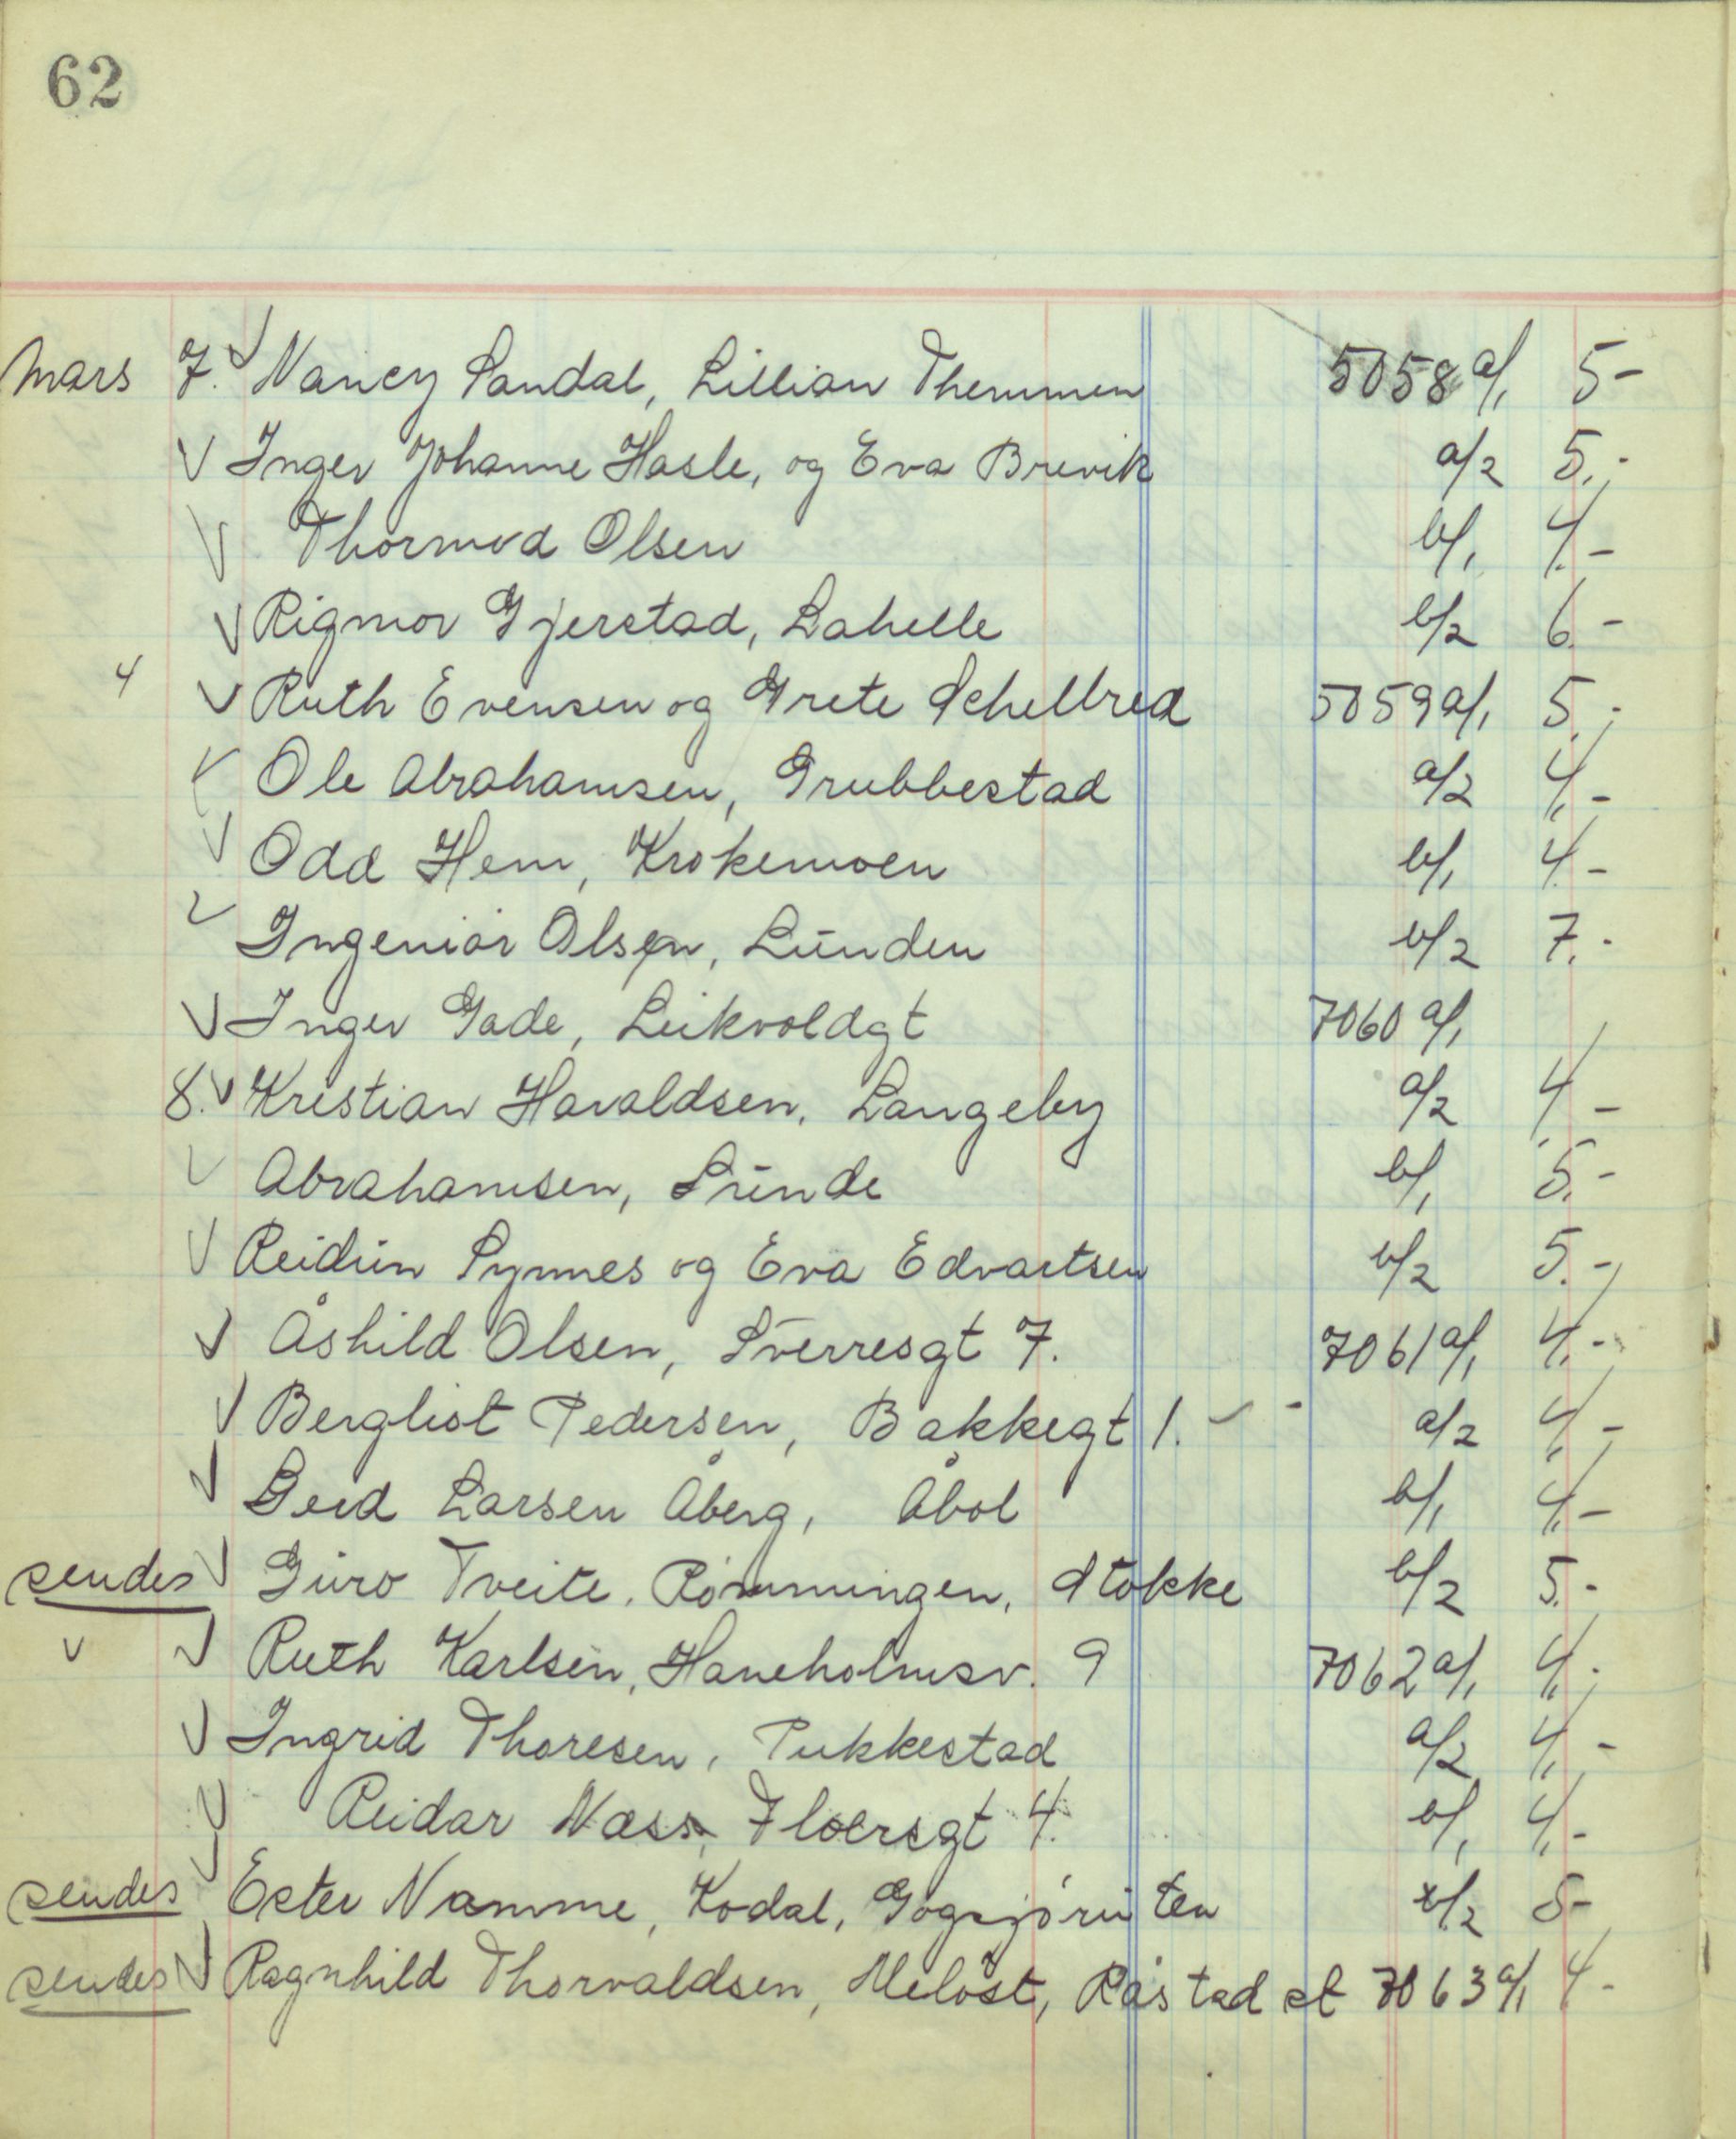 62
Mars 7. √ Nancy Sandal, Lillian Themmen 5058 a/1 5-
√ Inger Johanne Hasle, og Eva Brevik a/2 5.-
√ Thormod Olsen b/1 4.-
√ Rigmor Gjerstad, Lahelle b/2 6.-
4 √ Ruth Evensen og Grete Schelbred 5059 a/1 5.-
√ Ole Abrahamsen, Grubbestad a/2 4.-
√ Odd Hem, Krokemoen b/1 4.-
√ Ingeniør Olsen, Lunden b/2 7.-
√ Inger Gade, Leikvoldgt 7060 a/1
8. √ Kristian Havaldsen, Langeby a/2 4.-
√ Abrahamsen, Lunde b/1 5.-
√ Reidun Synnes og Eva Edvartsen b/2 5.-
√ Åshild Olsen, Sverresgt 7. 7061 a/1 4.-
√ Bergliot Pedersen, Bakkegt 1. √ - a/2 4.-
√ Gerd Larsen Åberg, Åbol b/1 4.-
sendes √ Guro Tveite, Rømmingen, Stokke b/2 5.-
√ √ Ruth Karlsen, Haneholmsv. 9 7062 a/1 4.-
√ Ingrid Thoresen, Pukkestad a/2 4.-
√ Reidar Næss, Floersgt 4. b/1 4.-
sendes √ Ester Namme, Kodal, b/2 5-
sendes √ Ragnhild Thorvaldsen, Meløst, Råstad st 7063 a/1 4.-